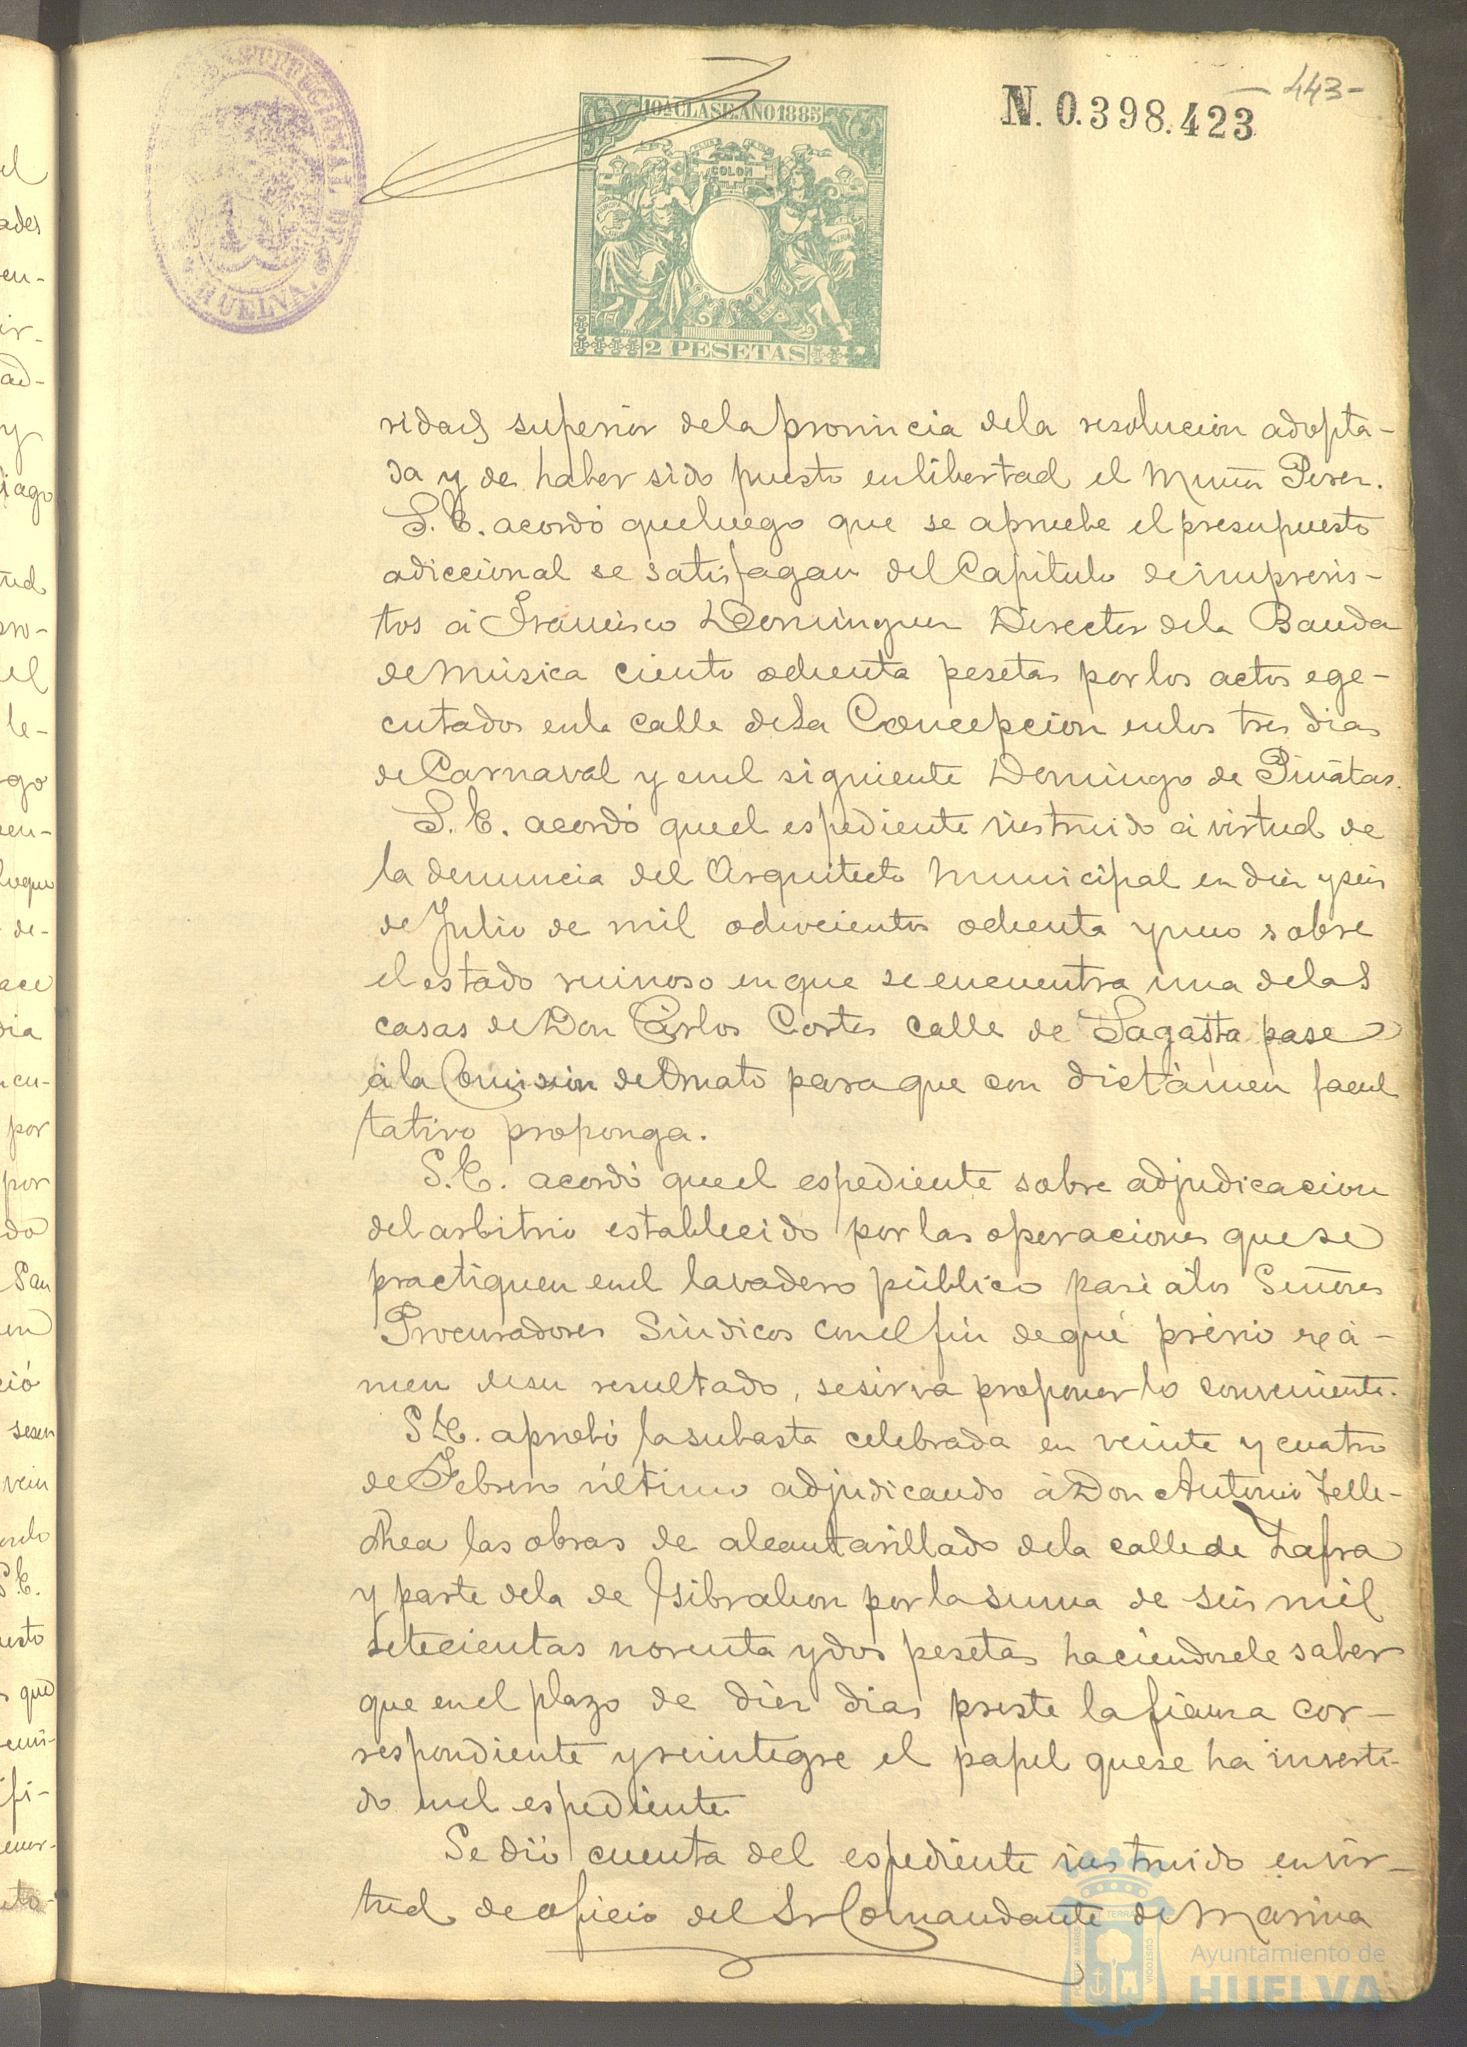 443-
N. 0.398.423
10ª CLASE. AÑO 1885
COLON
EUROPA
2 PESETAS
HUELVA.
ridad superior de la provincia de la resolucion adopta-
da y de haber sido puesto en libertad el Muñoz Perez.
S. E. acordó que luego que se apruebe el presupuesto
adiccional se satisfagan del Capitulo de imprevis-
tos á Francisco Dominguez Director de la Banda
de Música ciento ochenta pesetas por los actos ege-
cutados en la calle de la Concepcion en los tres dias
de Carnaval y en el siguiente Domingo de Piñatas.
S. E. acordó que el espediente instruido á virtud de
la denuncia del Arquitecto Municipal en diez y seis
de Julio de mil ochocientos ochenta y uno sobre
el estado ruinoso en que se encuentra una de las
casas de Don Cárlos Cortes calle de Sagasta pase
á la Comision de Ornato para que con dictámen facul
tativo proponga.
S. E. acordó que el espediente sobre adjudicacion
del arbitrio establecido por las operaciones que se
practiquen en el lavadero público pase á los Señores
Procuradores Sindicos con el fin de que prévio exá-
men de su resultado, se sirva proponer lo conveniente.
S. E. aprobó la subasta celebrada en veinte y cuatro
de Febrero último adjudicando á Don Antonio Telle-
chea las obras de alcantarillado de la calle de Zafra
y parte de la de Jsibraleon por la suma de seis mil
setecientas noventa y dos pesetas haciendosele saber
que en el plazo de diez dias preste la fianza cor-
respondiente y reintegre el papel que se ha inverti-
do en el espediente.
Se dió cuenta del espediente instruido en vir-
tud de oficio del Sr Comandante de Marina
Ayuntamiento de
HUELVA